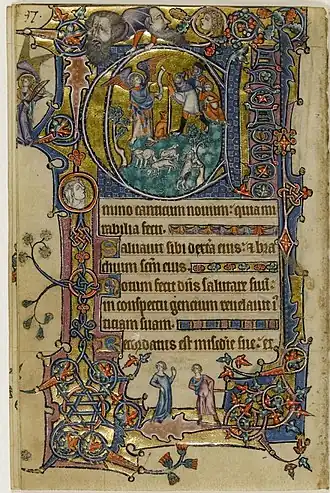 37.
C ANTATE
mino canticum nouum: quia mi
rabilia fecit.
Saluauit sibi dextera eius: & bra
chium sc̄m eius.
Notum fecit dn̄s salutare suū:
in conspectu gencium reuelauit i
ticiam suam.
Recordatus est mis̄cdie sue: et